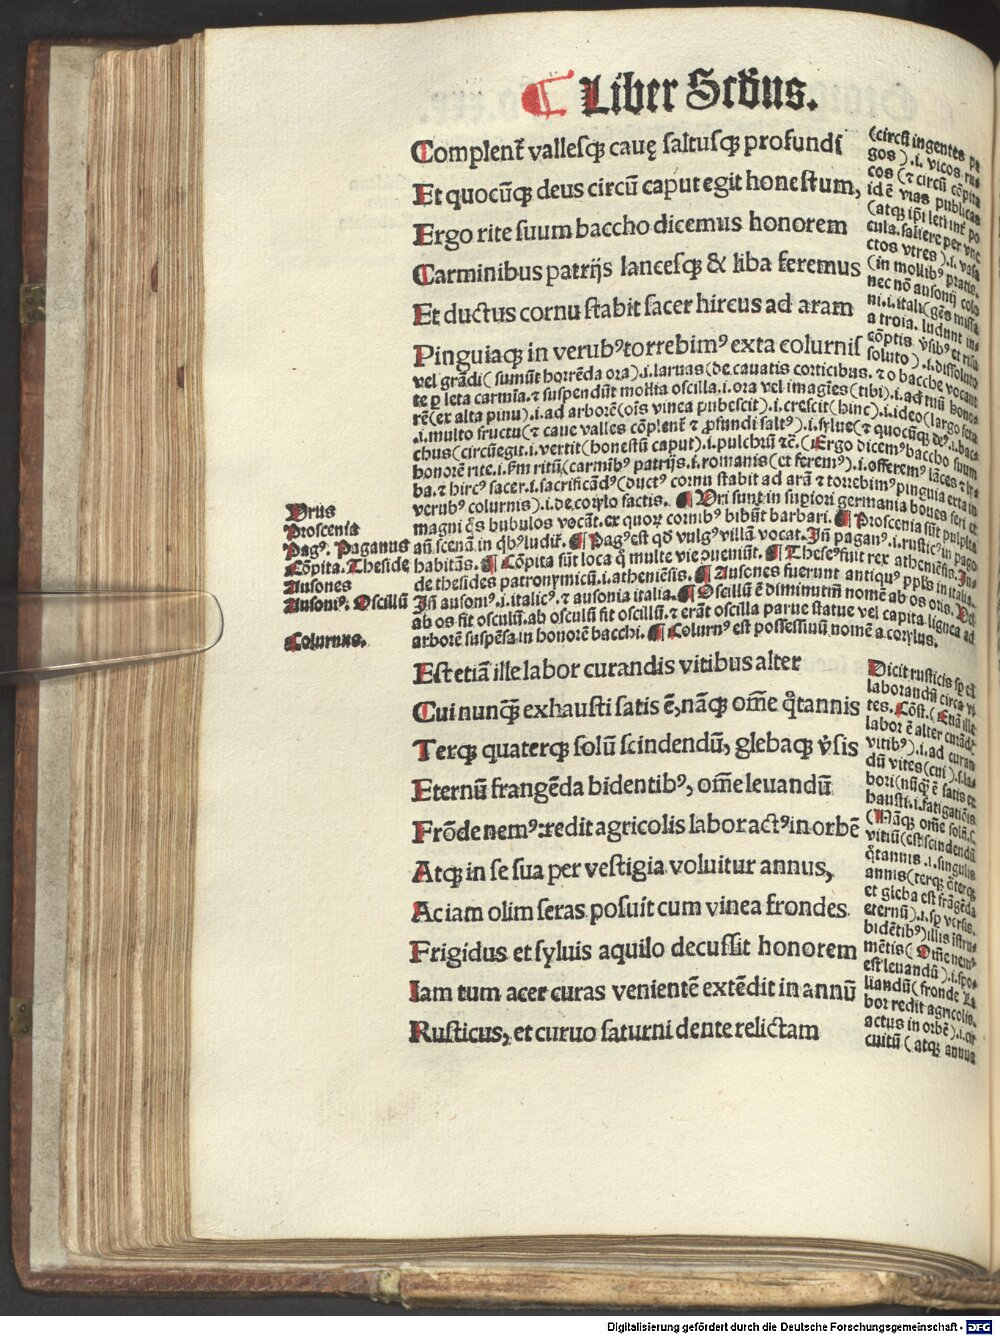 ¶ Liber Scd̄us.
Complent̄ vallesqꝫ cauę saltusqꝫ profundi
Et quocūqꝫ deus circū caput egit honestum,
Ergo rite suum baccho dicemus honorem
Carminibus patrijs lancesqꝫ & liba feremus
Et ductus cornu stabit sacer hircus ad aram
Pinguiaqꝫ in verubꝰ torrebimꝰ exta colurnis
(circū ingentes pa
gos).i. vicos ru
cos (⁊ circū cōpita
id ē vias publicas
(atqꝫ ip̄i leti int̄ po
cula. saliere per vnc
ctos vtres).i. vasa
(in mollibꝰ pratis.
nec nō ausonij colo
ni.i. itali (gēs missa
a troia. ludunt in
cōptis v̄sibꝰ et risu
soluto).i. dissoluto
vel grādi (sumūt horrēda ora).i. laruas (de cauatis corticibus. ⁊ o bacche vocant
te p leta carmīa. ⁊ suspendūt mollia oscilla.i. ora vel imagīes (tibi).i. ad tuū hono
rē (ex alta pinu).i. ad arborē (oīs vinea pubescit).i. crescit (hinc).i. ideo (largo fetu
.i. multo fructu (⁊ caue valles cōplent̄ ⁊ ꝓfundi saltꝰ).i. sylue (⁊ quocūqꝫ deꝰ.i. bac
chus (circūegit.i. vertit (honestū caput).i. pulchrū ⁊c̄. (Ergo dicemꝰ baccho suum
honorē rite.i. s̄m ritū (carmībꝰ patrijs.i. romanis (et feremꝰ).i. offeremꝰ lāces ⁊ li
ba. ⁊ hircꝰ sacer.i. sacrificādꝰ (ductꝰ cornu stabit ad arā ⁊ torrebimꝰ pinguia exta in
verubꝰ colurnis).i. de corylo factis. ¶ Vri sunt in supiori germania boues feri et
magni q̄s bubulos vocāt. ex quoꝝ cornibꝰ bibūt barbari. ¶ Proscenia sūt pulpita
an̄ scenā. in q̄bꝰ ludit̄. ¶ Pagꝰ est qd̄ vulgꝰ villā vocat. In̄ paganꝰ.i. rusticꝰ in pago
habitās. ¶ Cōpita sūt loca q̄ multe vie ꝯueniūt. ¶ Theseꝰ fuit rex atheniēsis. In̄
de thesides patronymicū.i. atheniēsis. ¶ Ausones fuerunt antiquꝰ ppl̄s in italia.
In̄ ausoniꝰ.i. italicꝰ. ⁊ ausonia italia. ¶ Oscillū ē diminutm̄ nomē ab os oris.
ab os fit osculū. ab osculū fit oscillū. ⁊ erāt oscilla parue statue vel capita lignea ad
arborē suspēsa in honorē bacchi. ¶ Colurnꝰ est possessiuū nomē a corylus.
Vrus
Proscenia
Pagꝰ. Paganus
Cōpita. Theside
Ausones
Ausoniꝰ. Oscillū
Colurnus.
Est etiā ille labor curandis vitibus alter
Cui nunq̄ꝫ exhausti satis ē, nāqꝫ om̄e q̊tannis
Terqꝫ quaterqꝫ solū scindendū, glebaqꝫ v̓sis
Eternū frangēda bidentibꝰ, om̄e leuandū
Frōde nemꝰ: redit agricolis labor actꝰ in orbē
Atqꝫ in se sua per vestigia voluitur annus,
Ac iam olim seras posuit cum vinea frondes.
Frigidus et syluis aquilo decussit honorem
Iam tum acer curas venientē extēdit in annū
Rusticus, et curuo saturni dente relictam
Dicit rusticis sp̄ eē
laborandū circa vi
tes. Cōst. (Etiā ille
labor ē alter curādꝭ
vitibꝰ).i. ad curan
dū vites (cui).s. la
bori (nūq̄ꝫ ē satis ex
hausti.i. fatigatiōis
(Nāqꝫ om̄e solū.s.
vitiū (est scindendū
q̊tannis.i. singulis
annis (terqꝫ q̊terqꝫ
et gleba est frāgēda
eternū).i. sp̄ versis.
bidētibꝰ) illis īstru
mētis (Om̄e nemꝰ
est leuandū).i. spo
liandū (fronde La
bor redit agricolis.
actus in orbē).i. cir
cuitū (atqꝫ annus
Digitalisierung gefördert durch die Deutsche Forschungsgemeinschaft - DFG